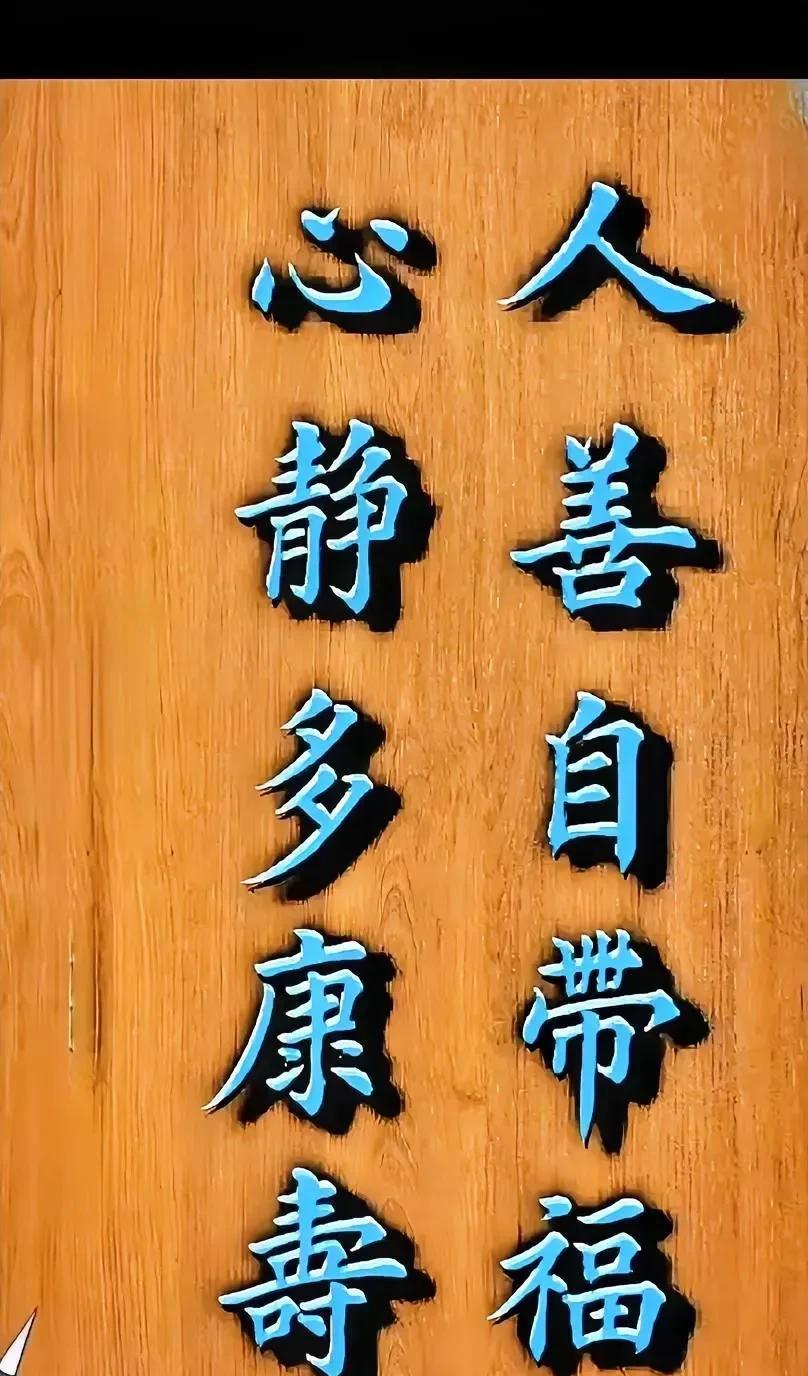 人善自帶福
心静多康壽